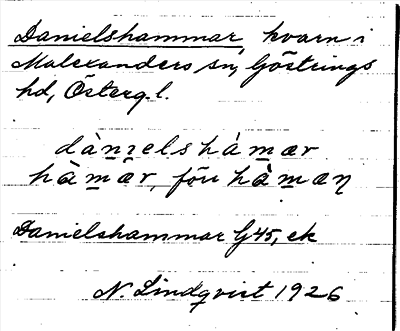 Danielshammar, kvarn i
Malexanders sn, Göstrings
hd, Österg.l.
dànιelshàmær
hàmær, fôu hàmæn
Danielshammar G45, ek
N. Lindqvist 1926